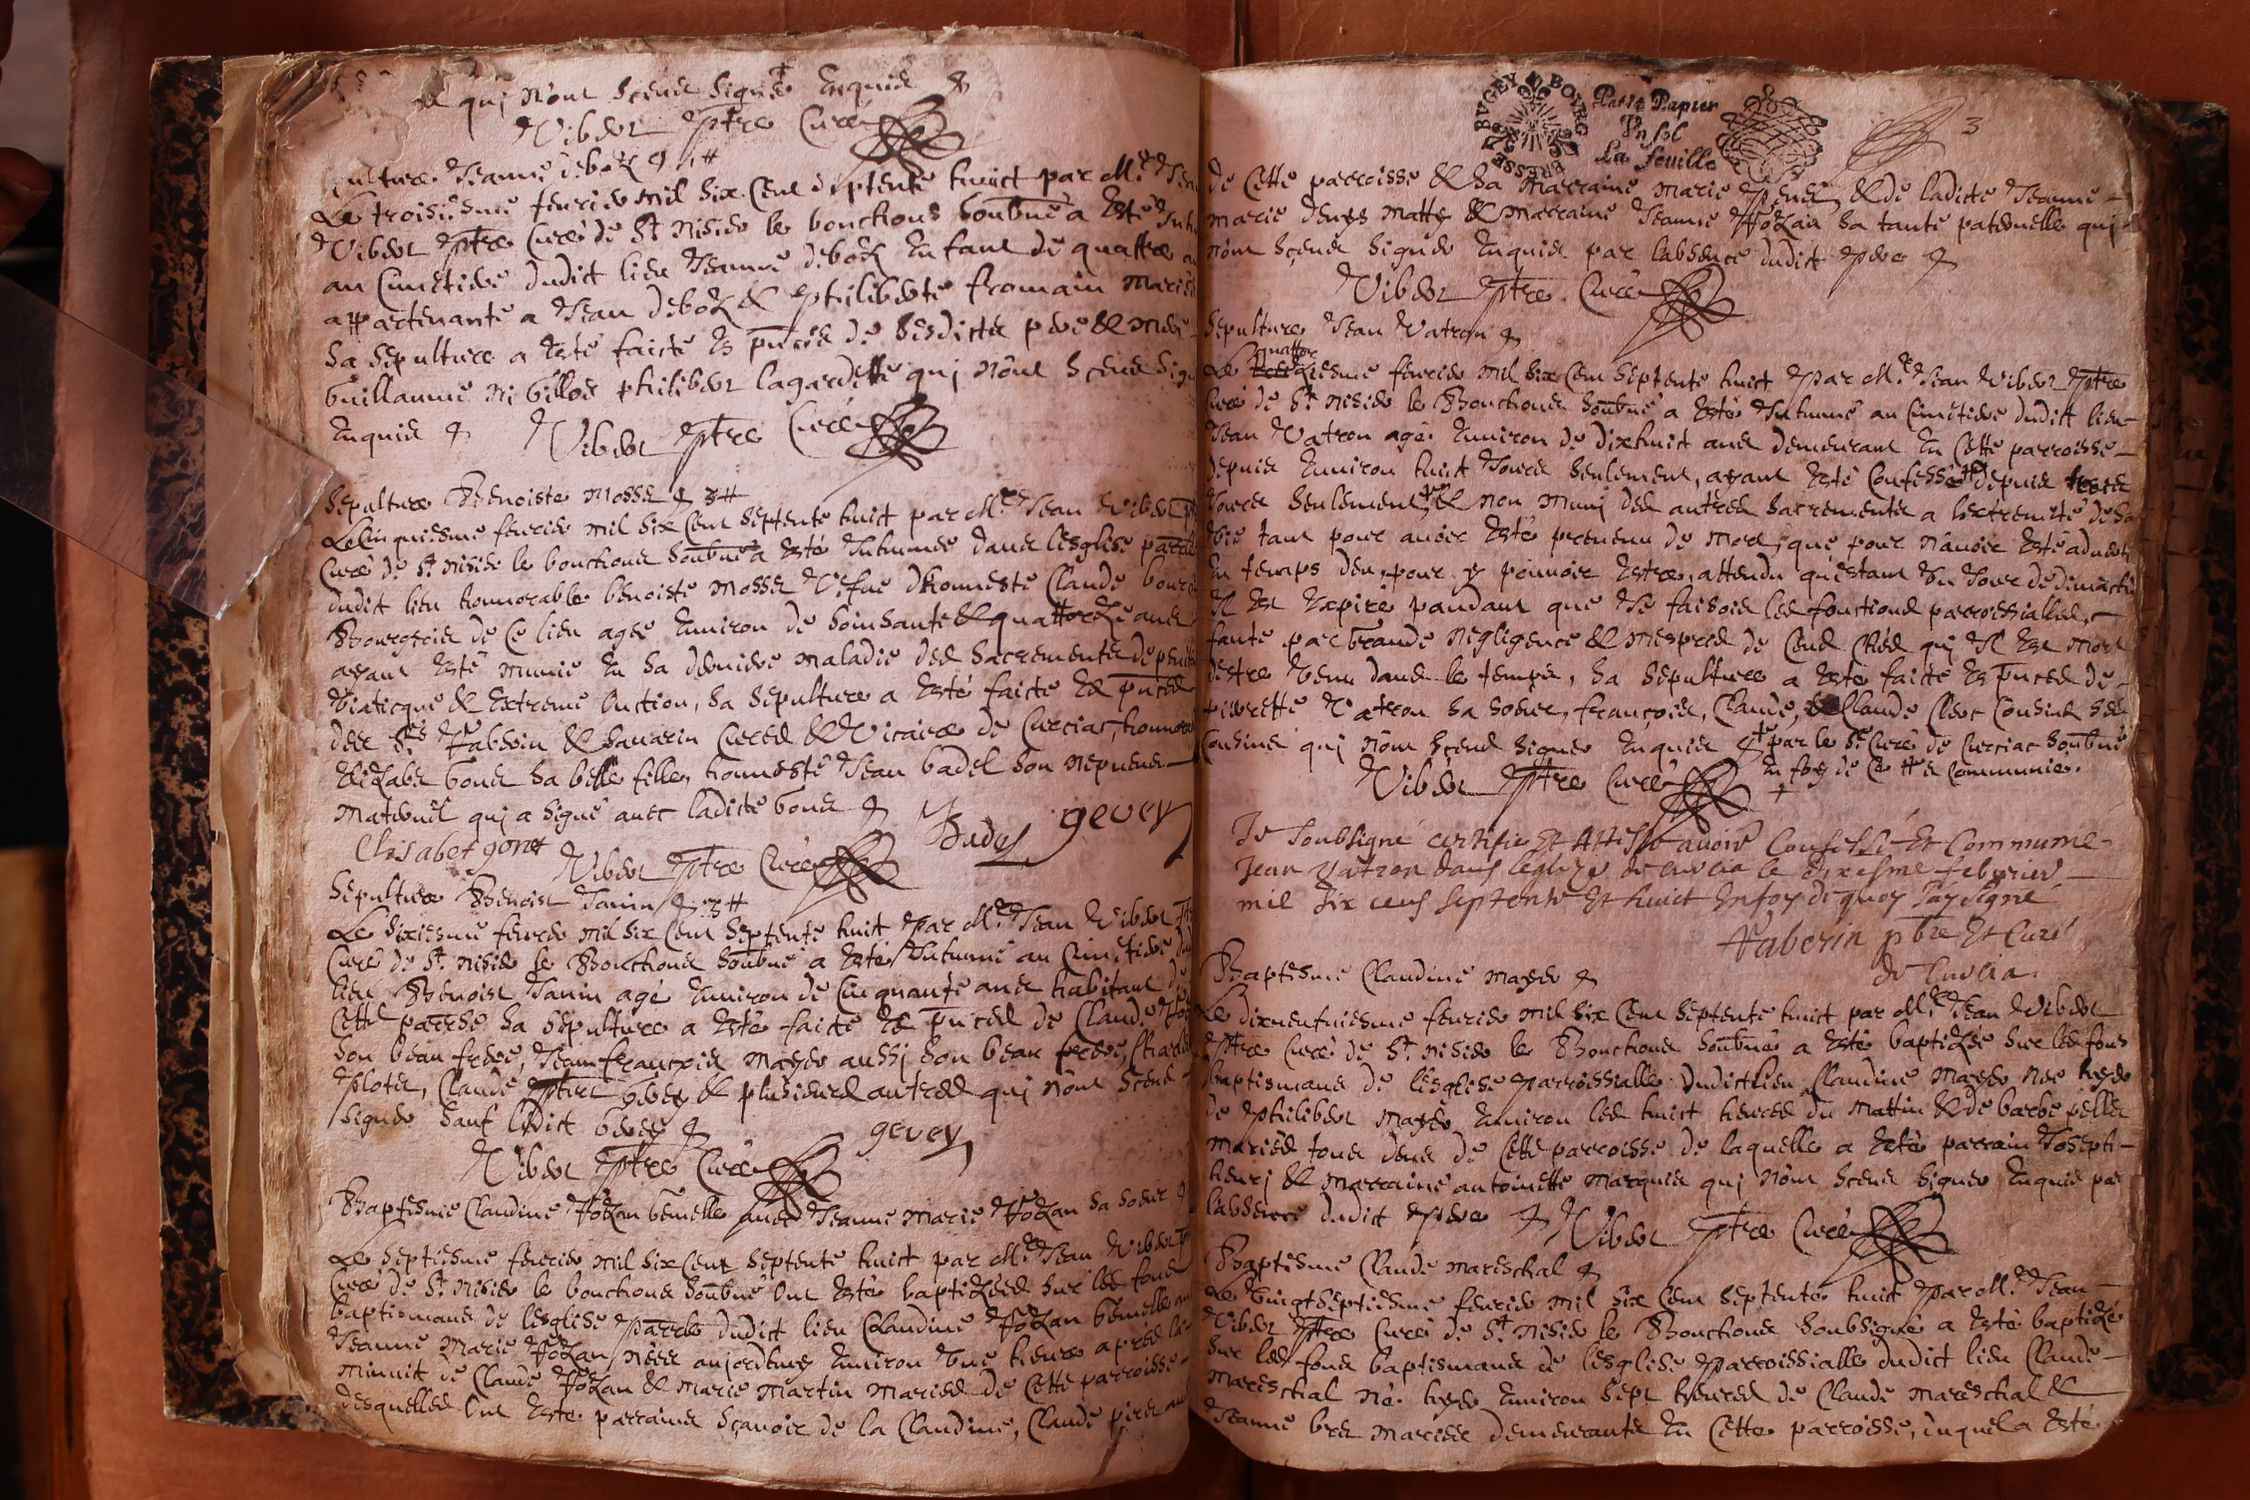 et qui n'ont sceus signé enquis
Vibert ptre Curé
Sepulture Jeanne deboz
Le troisiesme feurier mil six cent septente huict par Mre Jean
Vibert ptre Curé de St nisier le bouchous soubné a esté Inhu
au Cimetiere dudict lieu Jeanne deboz enfant de quattre
appartenante a Jean deboz & philiberte fromain mariés
sa sepulture a esté faicte es pnces de sesdicts pere & mere
Guillaume philibert lagardette qui n'ont sceus sig
enquis Vibert ptre Curé
Sepulture Benoiste mosse
Le Cinquiesme feurier mil six cent septente huict par Mre Jean Vibert
Curé de St nisier le bouchous soubné a esté Inhumée dans lesglise parrlle
dudict lieu honnorable benoiste mosse Vefue dhonneste Claude
Bourgeois de ce lieu agée enuiron de soixsante & quattorze ans
ayant esté munie en sa derniere maladie des sacrements de penit
Viaticque & extreme Onction, sa sepulture a esté faicte es pnces
des Srs faberin & sauarin Curés & Vicaire de Curciat, honnor
Elizabet gone sa belle fille, honneste Jean badel son nepueu
maternel qui a signé auec ladicte gone
Elisabet gone Badel gevey
Vibert ptre Curé
Sepulture Benoist Janin
Le sixiesme feurier mil six cent septente huict par Mre Jean Vibert
Curé de St nisier le Bouchous soubné a esté Inhumé au Cimetiere du
lieu Benoist Janin agé enuiron de Cinquante ans habitant de
Cette parrsse sa sepulture a esté faicte es pnces de Claude
son beau frere, Jean francois mayer aussi son beau frere,
Claude gevey & plusieurs autres qui n'ont sceus
signer sauf ledict gevey gevey
Vibert ptre Curé
Baptesme Claudine Jozan gemelle auec Jeanne Marie Jozan sa soeur
Le septiesme feurier mil six cent septente huict par Mre Jean Vibert
Curé de St nisier le bouchous soubné ont esté baptizées sur les fons
baptismaux de lesglise parrlle dudict lieu Claudine Jozan gemelle
Jeanne Marie Jozan nées aujordhuy enuiron une heure apres la
minuit de Claude Jozan & marie martin mariés de Cette parroisse
desquelles ont esté parrains sçauoir de la Claudine, Claude
BVGEY BOVRG BRESSE
Petit Papier
Vn sol
La feuille
3
de Cette parroisse & sa marraine marie & de ladicte Jeanne
marie denys matty & marraine Jeanne Jozan sa tante paternelle qui
n'ont sceus signer enquis par labsence dudict pere
Vibert ptre Curé
Sepulture Jean Vatron
quattor
Le ziesme feurier mil six cent septente huict par Mre Jean Vibert ptre
Curé de St nisier le Bouchous soubné a esté Inhumé au Cimetiere dudict lieu
Jean Vatron agé enuiron de dixhuict ans demeurant en Cette parroisse
depuis enuiron huict Jours seulement, ayant esté Confessé depuis trois
Jours seulement, & non muni des autres sacrements a lextremité de sa
vie tant pour auoir esté preuenu de mort, que pour n'auoir esté aduerti
en temps deu, pour y pouuoir estre, attendu qu'estant un Jour de dimanche
Il est expiré pandant que Je faisois les fonctions parroissialles,
faute par grande negligence & mespris de Ceus chés qui Il est mort
destre venu dans le temps, sa sepulture a esté faicte es pnces de
pierrette Vatron sa soeur, francois, Claude, & Claude Clerc Cousins ses
Cousins qui n'ont sceus signer enquis par le Sr Curé de Curciat soubné
Vibert ptre Curé en foy de Ce & Communié.
Je soubsigné certifie et Atteste auoir Confessé et Communié
Jean Vatron dans leglize de Curcia le dixesme feburier
mil six cens septente et huict En foy de quoy J'ay signé
faberin pbre et Curé
de Curcia.
Baptesme Claudine mayer
Le dixneufuiesme feurier mil six cent septente huict par Mre Jean Vibert
ptre Curé de St nisier le Bouchous soubné a esté baptizée sur les fons
baptismaux de lesglise parroissialle dudict lieu Claudine mayer née hyer
de philibert mayer enuiron les huict heures du mattin & de barbe pelle
mariés tous deux de Cette parroisse de laquelle a esté parrain Joseph
henri & marraine antoinette marquis qui n'ont sceus signer enquis par
labsence dudict pere Vibert ptre Curé
Baptesme Claude mareschal
Le Vingtseptiesme feurier mil six cent septente huict par Mre Jean
Vibert ptre Curé de St nisier le Bouchous soubsigné a esté baptizé
sur les fons baptismaux de lesglise parroissialle dudict lieu Claude
mareschal né hyer enuiron sept heures de Claude mareschal &
Jeanne mariés demeurants en Cette parroisse, duquel a esté